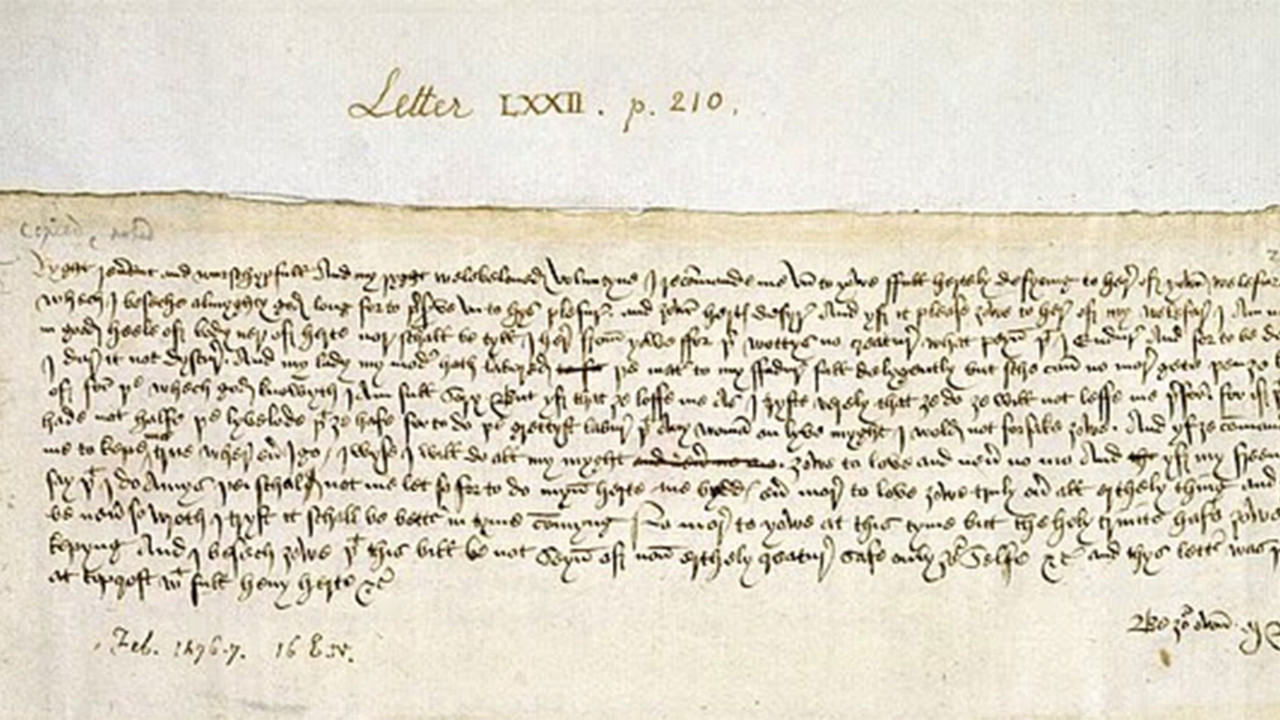 Letter LXXII. p. 210.
copied
Ryght reuerent and worschypfull And my ryght welebeloued Volentyne I recommande me vn to yowe ffull hertely desyring to here off yowr welefare
whech I beseche almyghty god long for to preserve vn to hys plesur and yowr hertys desyre And yff it please yowe to here off my welefare I Am
in good heele off body ner off herte nor schall be tyll I here from yowe ffor þer wottys no creature what peyn þat I Endure And for to be
I dure it not dyscure And my lady my moder hath labored þe mater to my ffadur full delygently but sche can no more gete
off for þe whech god knowyth I Am full Sory But yff that ye loffe me As I tryste verely that ye do ye will not leffe me þerfor for iff
hade not halfe þe lyvelode þat ye hafe for to do þe grettyst labur þat Any woman on lyve myght I wold not forsake yowe And yf ye
me to kepe me true where euer I go I wyse I will do all my myght yowe to love and neuer no mo And yff my
say þat I do Amys þei schal not me let so for to do myn herte me euer more to love yowe truly ouer all erthely thing And
be neuer so wroth I tryst it schall be better in tyme comyng No more to yowe at this tyme but the holy trinite hafe yowe
kepyng And I besech yowe þat this bill be not Seyn off non erthely creature safe only yowr Selfe &c and thys letter was
at topcroft with full hevy herte &c
Be yowr own
Feb. 1476-7. 16 E. IV.